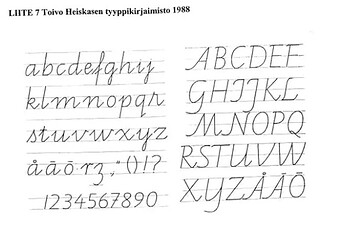 LIITE 7 Toivo Heiskasen tyyppikirjaimisto 1988
abcdefghij
klmnopqr
stuvwxyz
åäörz,"()!?
1234567890
ABCDEF
GHIJKL
MNOPQ
RSTUVW
XYZÅÄÖ